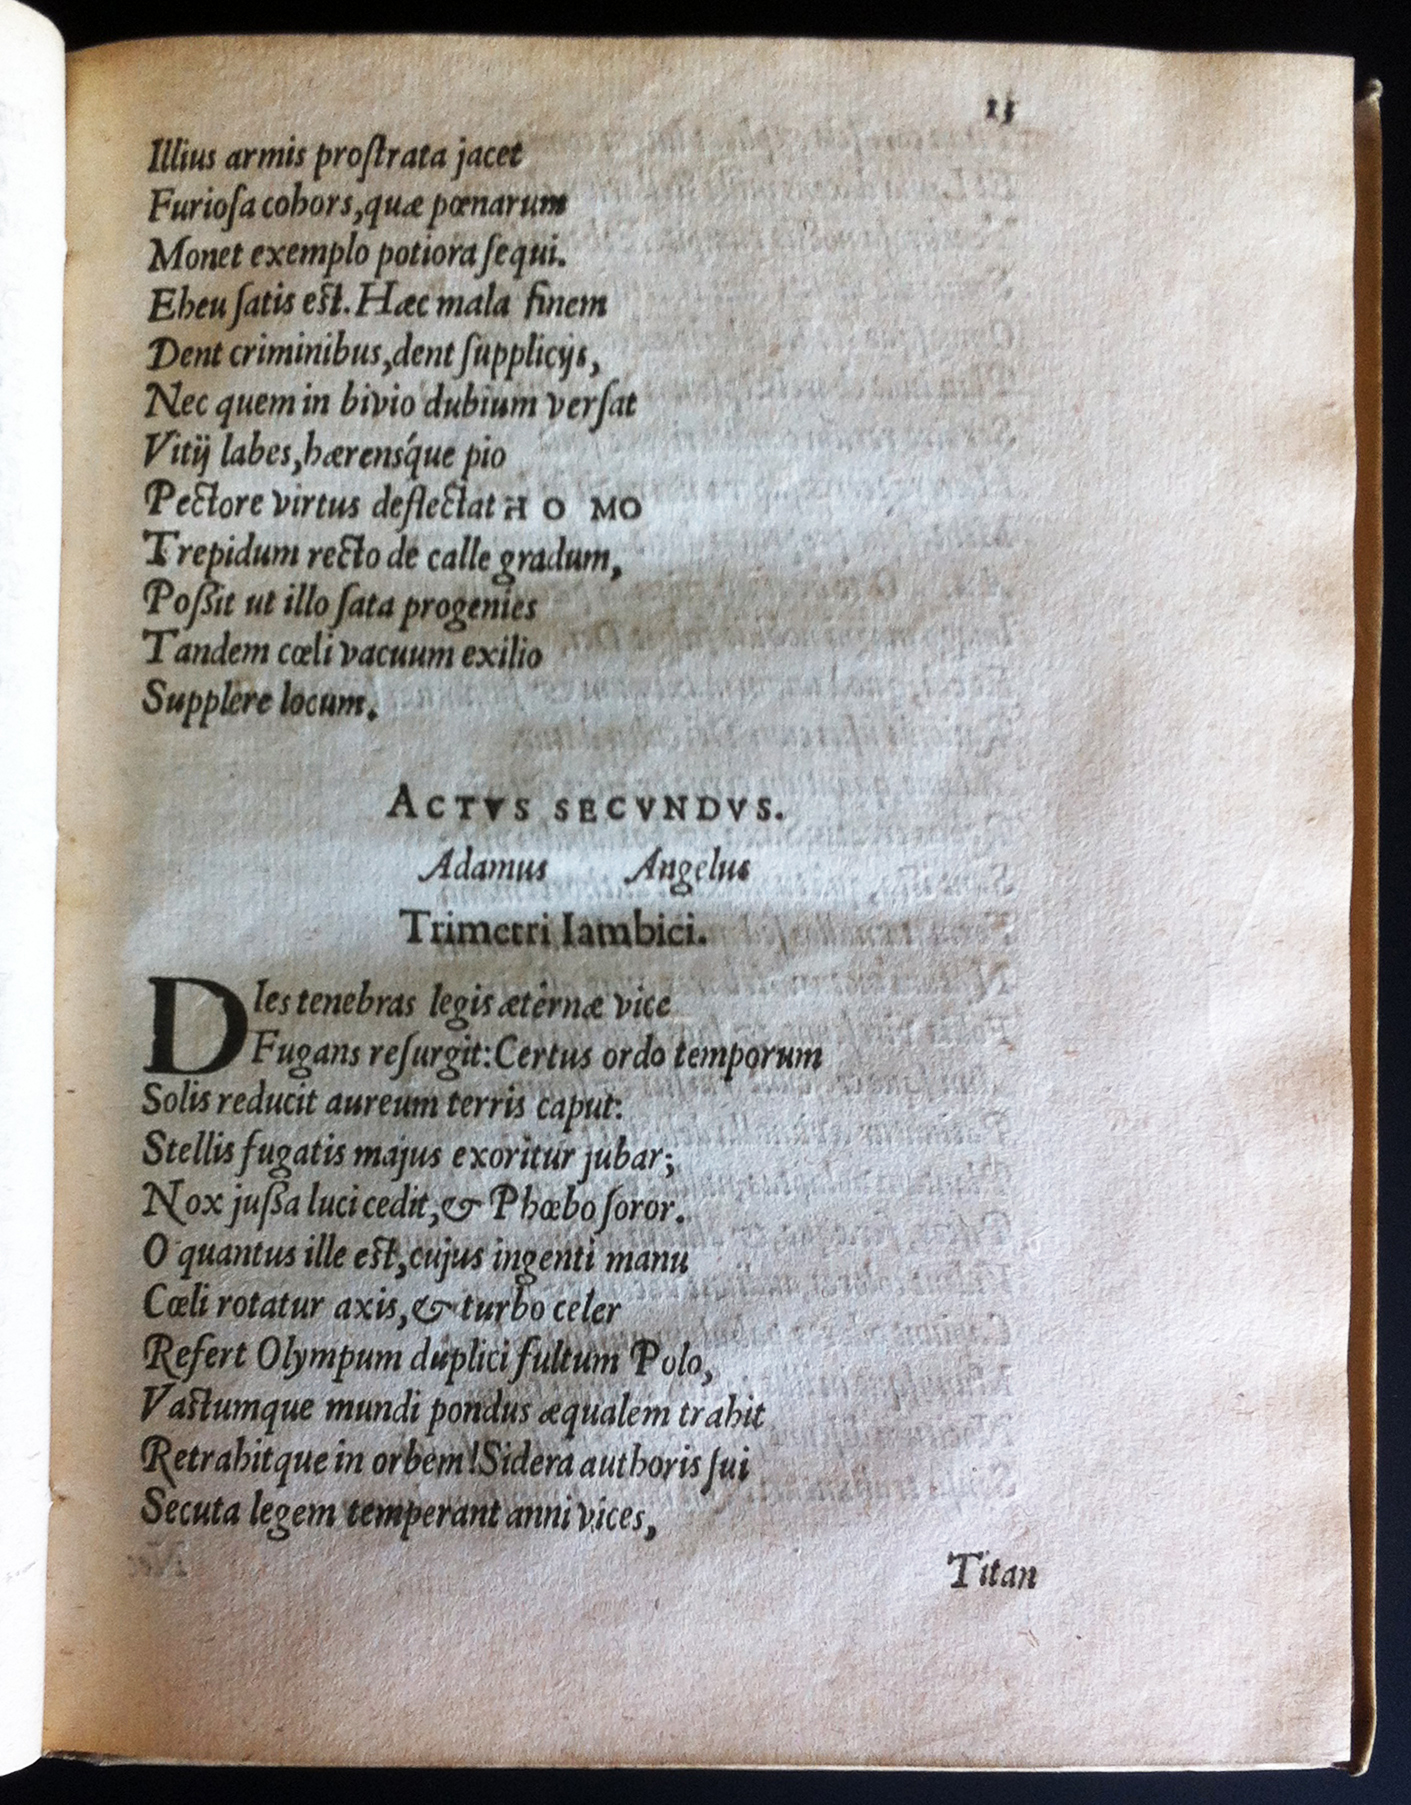 13
Illius armis proſtrata jacet
Furioſa cohors,quæ pœnarum
Monet exemplo potiora ſequi.
Eheu ſatis eſt. Hæc mala finem
Dent criminibus,dent ſupplicijs,
Nec quem in bivio dubium verſat
Vitij labes,hærensq́ue pio
Pectore virtus deflectat HOMO
Trepidum recto de calle gradum,
Poßit ut illo ſata progenies
Tandem cœli vacuum exilio
Supplere locum.
ACTVS SECVNDVS.
Adamus Angelus
Trimetri Iambici.
DIes tenebras legis æternæ vice
Fugans reſurgit:Certus ordo temporum
Solis reducit aureum terris caput:
Stellis fugatis majus exoritur jubar;
Nox juſſa luci cedit,& Phœbo ſoror.
O quantus ille eſt,cujus ingenti manu
Cœli rotatur axis,& turbo celer
Refert Olympum duplici fultum Polo,
Vaſtumque mundi pondus æqualem trahit
Retrahitque in orbem!Sidera authoris ſui
Secuta legem temperant anni vices,
Titan